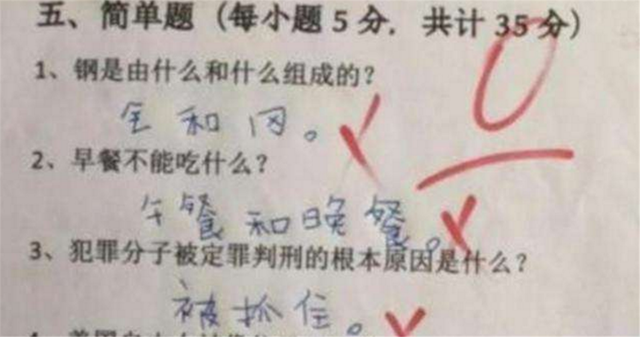 五、简单题（每小题5分. 共计35分）
0
1、钢是由什么和什么组成的？
全和冈。
2、早餐不能吃什么？
午餐和晚餐。
3、犯罪分子被定罪判刑的根本原因是什么？
被抓住。